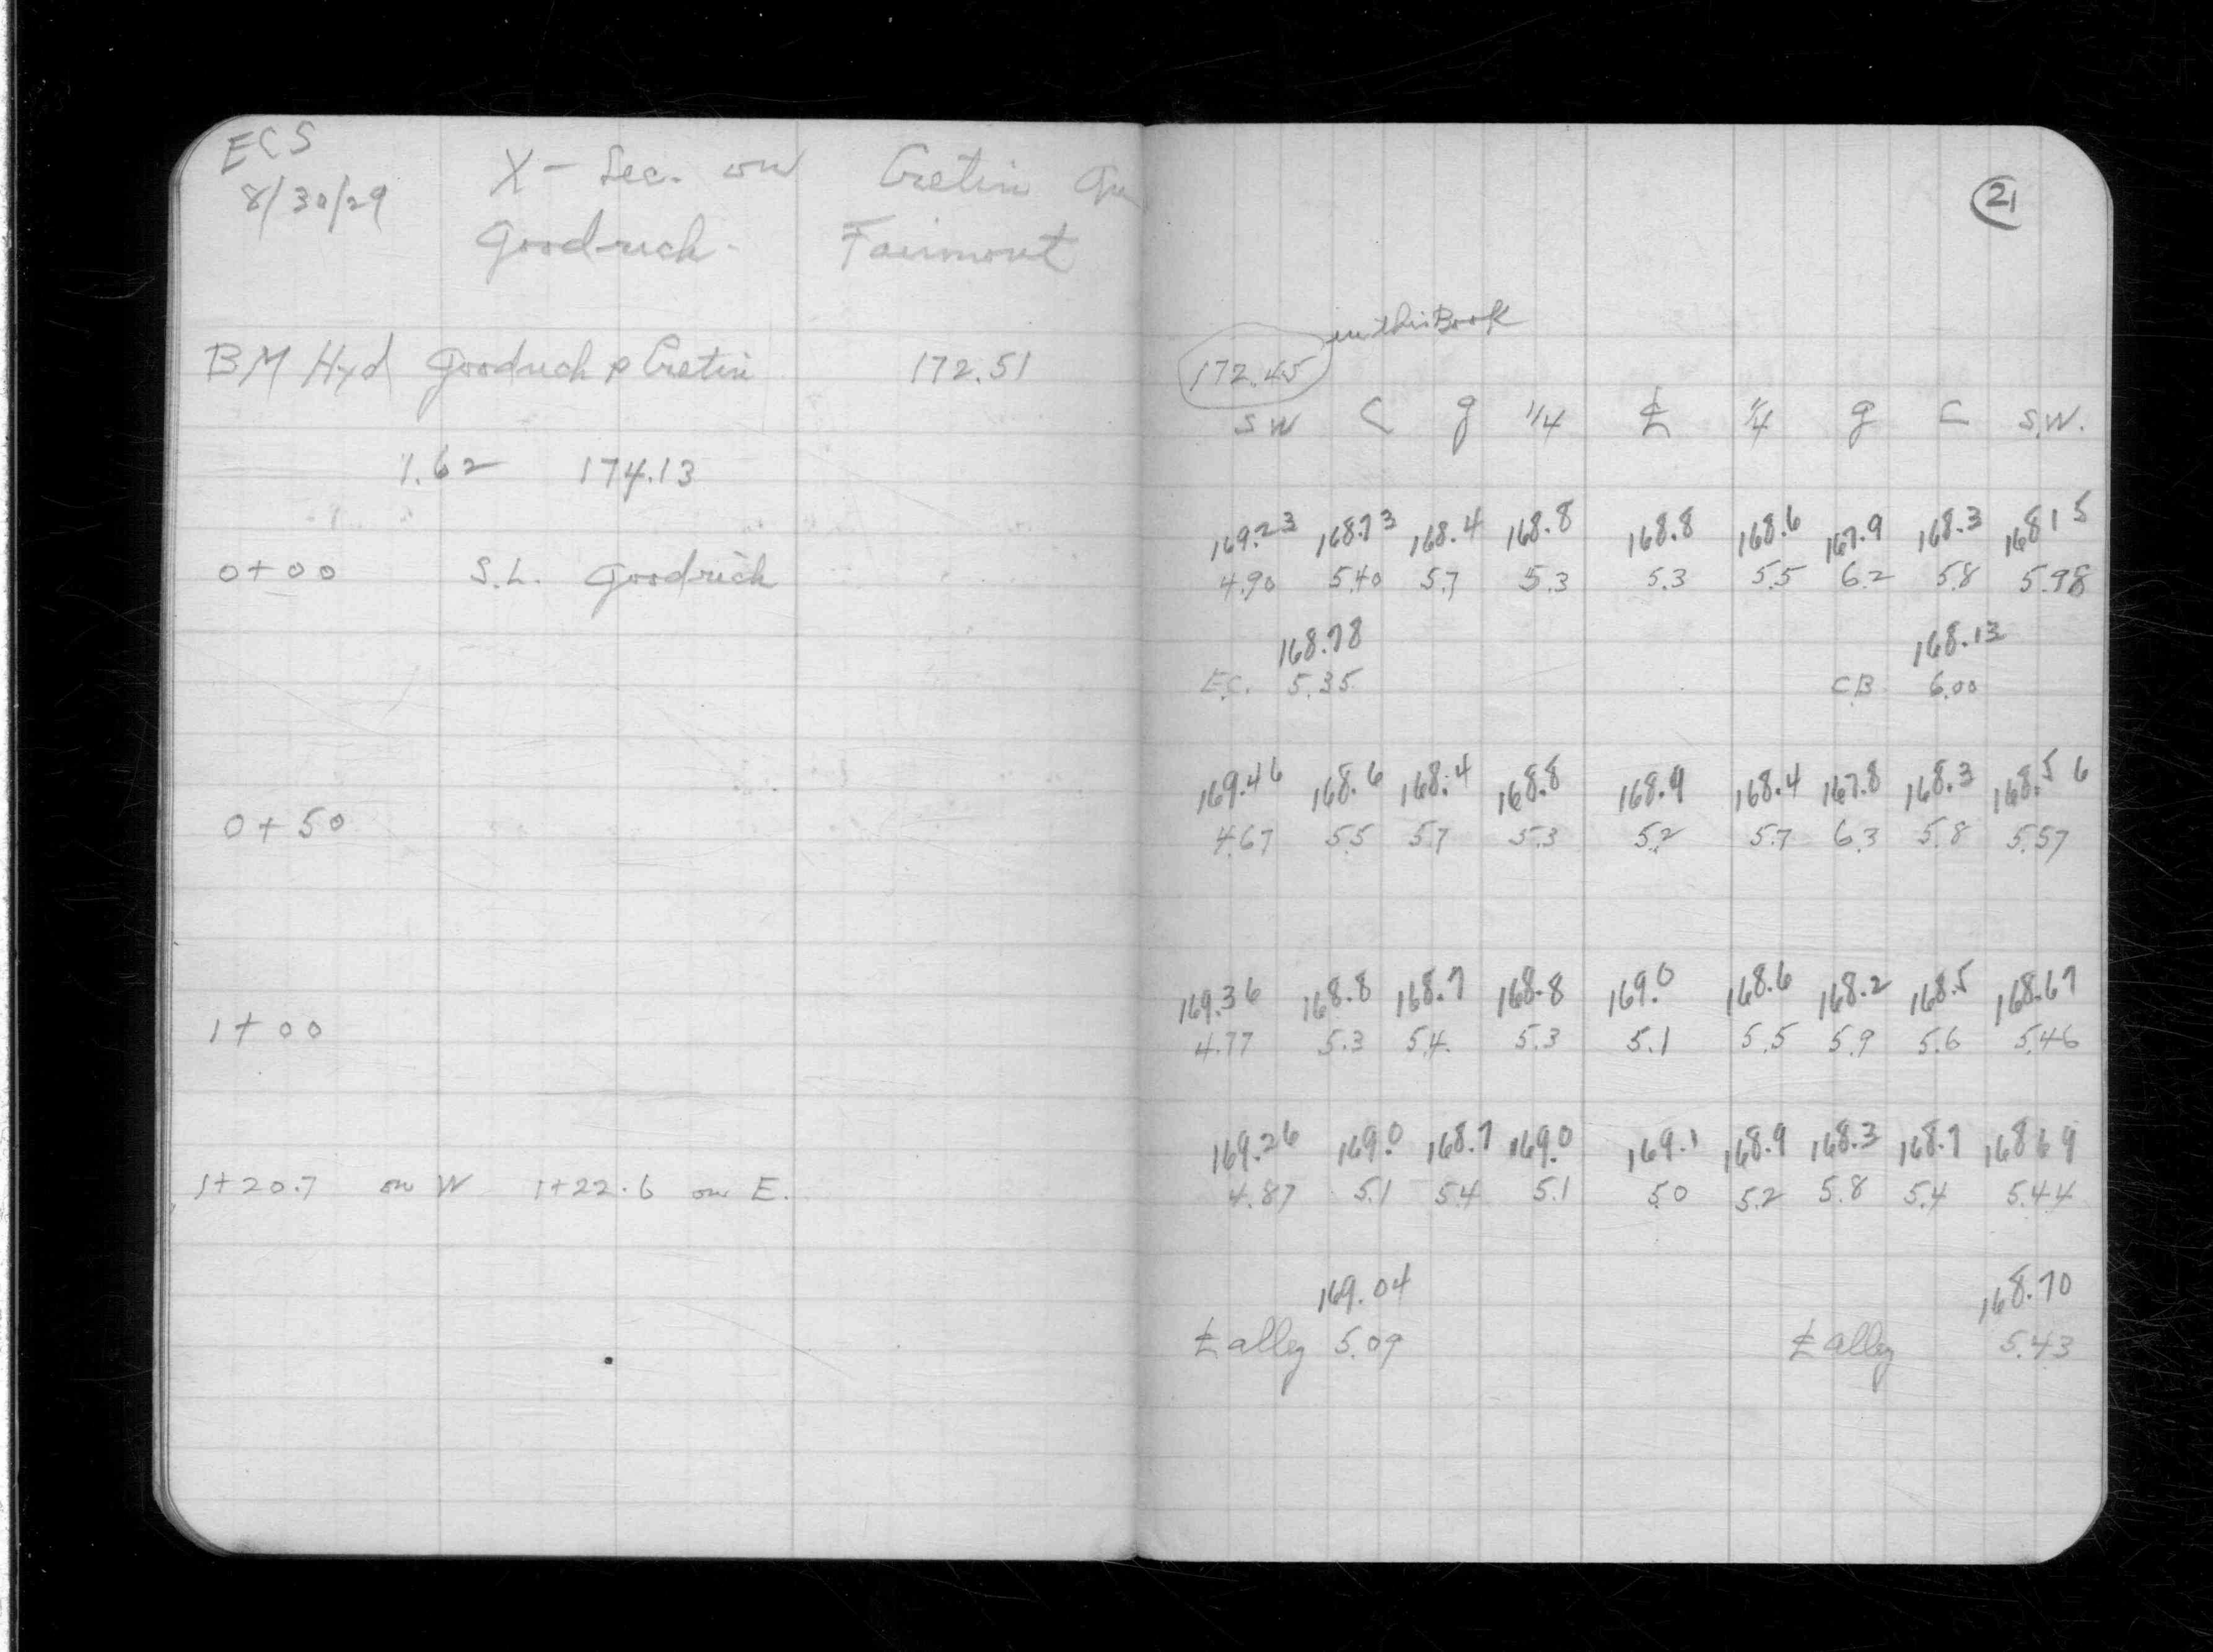 ECS
8/30/29
X-Sec. on Cretin Av
Goodrich - Fairmount
BM Hyd Goodrich & Cretin 172.51
1.62 174.13
0+00 S.L. Goodrich
0+50
1+00
1+20.7 on W 1+22.6 on E.
21
in this Book
172.45
SW C g 1/4 ℄ 1/4 g C S.W.
169.23 168.73 168.4 168.8 168.8 168.6 167.9 168.3 168 15
4.90 5.40 5.7 5.3 5.3 5.5 6.2 5.8 5.98
168.78 168.13
E.C. 5.35 CB 6.00
169.46 168.6 168.4 168.8 168.9 168.4 167.8 168.3 168.56
4.67 5.5 5.7 5.3 5.2 5.7 6.3 5.8 5.57
169.36 168.8 168.7 168.8 169.0 168.6 168.2 168.5 168.67
4.77 5.3 5.4 5.3 5.1 5.5 5.9 5.6 5.46
169.26 169.0 168.7 169.0 169.1 168.9 168.3 168.7 168 69
4.87 5.1 5.4 5.1 5.0 5.2 5.8 5.4 5.44
169.04 168.70
℄ alley 5.09 ℄ alley 5.43